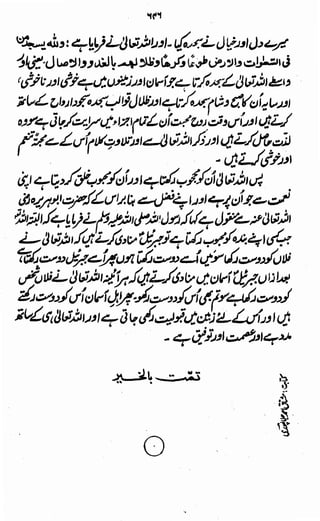 ۶۴۶
میرے دل اور خیال نے سجدہ کیا۔ اور اللہ تعالیٰ نے فرمایا ہے: وللہ یسجد من
فی السمٰوات والارض طوعًا وکرھًا وظلالھم بالغدو والاٰصال۔ یعنی اور
واسطے اللہ تعالیٰ کے سجدہ کرتا ہے جو آسمان اور زمینوں میں ہے خوشی اور ناخوشی،
اور سایہ اُن کا صبح و شام سجدہ کرتا ہے اور ظلال قوالب سجدہ بجود ارواح کے ساتھ
کرتے ہیں اور اس وقت روح محبت اُن کے تمام اجزاء میں سرایت کر جاتی ہے سو وہ
لذت حاصل کرتے ہیں اور ذکر اللہ تعالیٰ سے اور تلاوتِ کلام اُس کے سے محبۃً تنعم
اور خوشی کرتے ہیں۔
پس اللہ تعالیٰ اُن کو محبوب رکھتا ہے اور اُن کو محبوب خلق کر دیتا ہے اپنی
نعمت سے جو اُن پر ہے اور اپنے فضل سے بنا براس کے کہ حضرت ابو ہریرہ رضی
اللہ تعالیٰ عنہ سے منقول ہے کہا کہ رسول اللہ صلی اللہ علیہ وسلم نے فرمایا ہے کہ البتہ اللہ
جب کسی اپنے بندہ کو محبوب رکھتا ہے تو جبرئیلؑ منادی کرتے ہیں کہ اللہ تعالیٰ نے
فلاں کو دوست رکھا سو میں اُسے دوست رکھتا ہوں پھر اُسے جبرئیل دوست رکھتا ہے
بعد ازاں جبرئیلؑ آسمان میں منادی کرتے ہیں کہ ہر آئینہ اللہ تعالیٰ نے فلاں شخص
کو دوست رکھا ہے سو تم بھی اُس کو دوست رکھو۔ پھر اہل آسمان اُس کو دوست رکھتے
ہیں اور اُس کے لئے زمین میں قبولیت رکھی جاتی ہے اور اللہ تعالیٰ ہی کے ساتھ
مدد ہے اور عصمت اور توفیق ہے۔
تمّت بالخیر